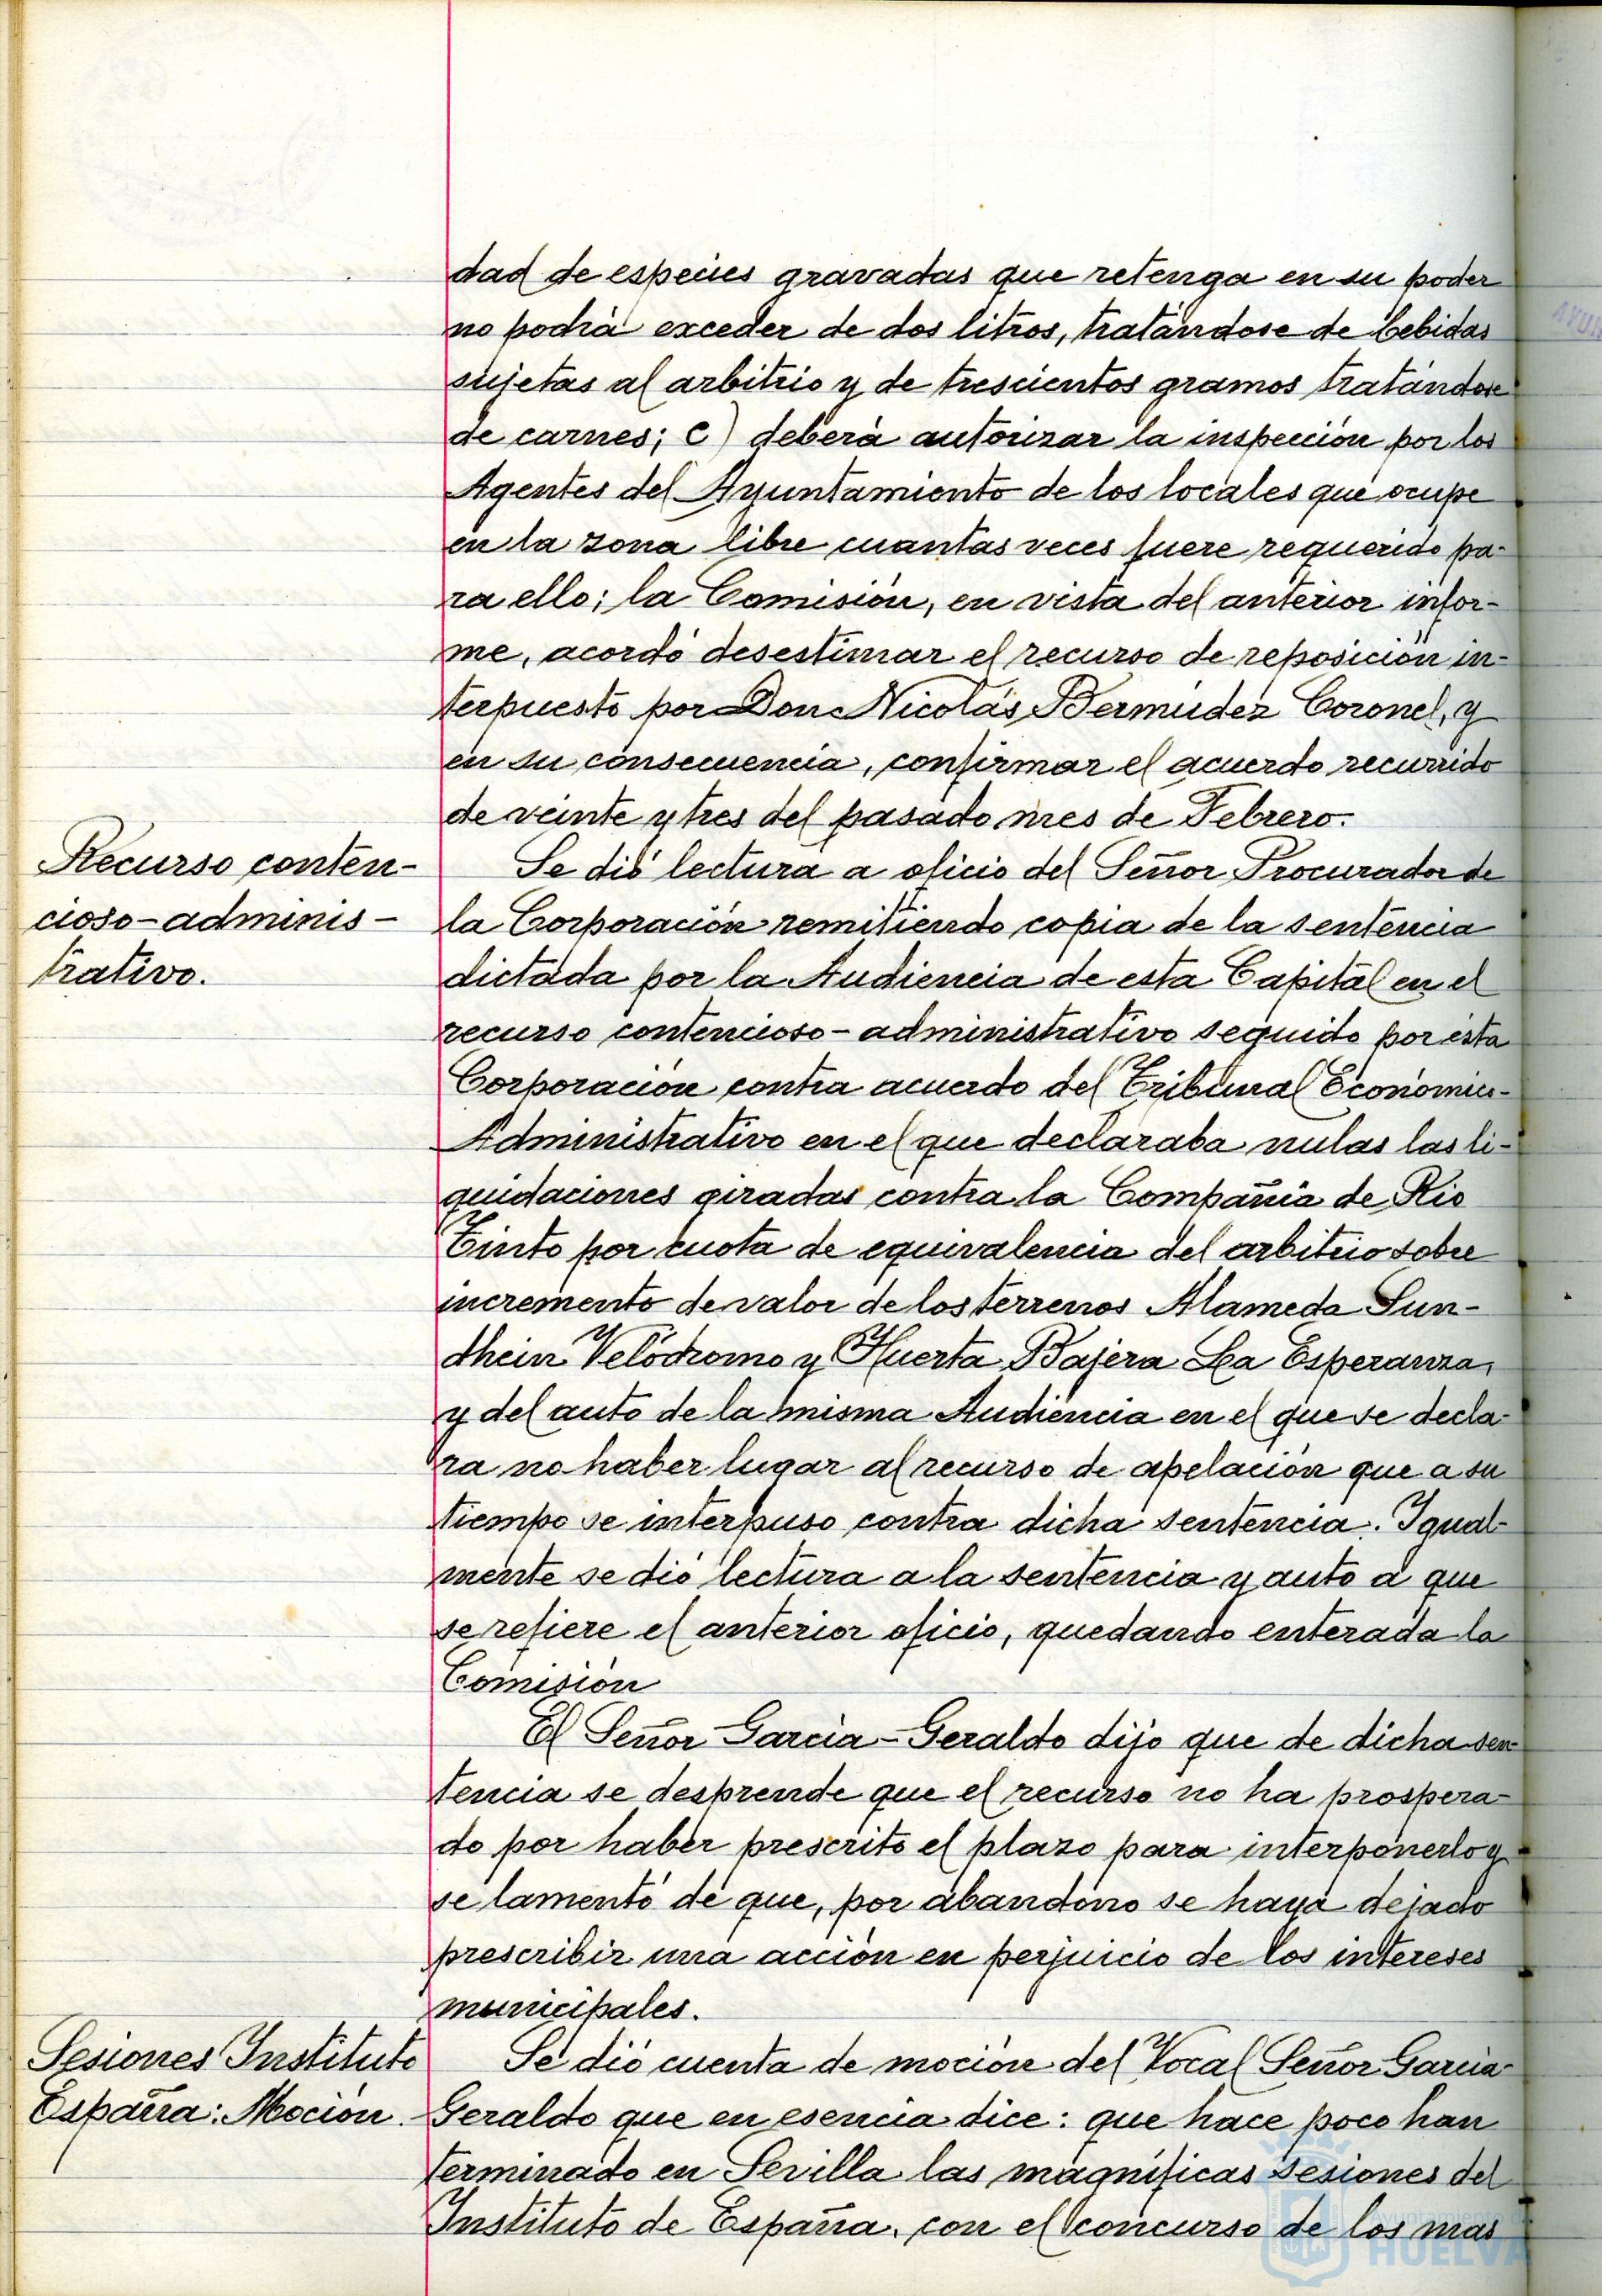 dad de especies gravadas que retenga en su poder
no podrá exceder de dos litros, tratándose de bebidas
sujetas al arbitrio y de trescientos gramos tratándose
de carnes; c) deberá autorizar la inspección por los
Agentes del Ayuntamiento de los locales que ocupe
en la zona libre cuantas veces fuere requerido pa-
ra ello; la Comisión, en vista del anterior infor-
me, acordó desestimar el recurso de reposición in-
terpuesto por Don Nicolás Bermúdez Coronel, y
en su consecuencia, confirmar el acuerdo recurrido
de veinte y tres del pasado mes de Febrero.
Recurso conten-
cioso-adminis-
trativo.
Se dió lectura a oficio del Señor Procurador de
la Corporación remitiendo copia de la sentencia
dictada por la Audiencia de esta Capital en el
recurso contencioso-administrativo seguido por esta
Corporación contra acuerdo del Tribunal Económico-
Administrativo en el que declaraba nulas las li-
quidaciones giradas contra la Compañía de Rio
Tinto por cuota de equivalencia del arbitrio sobre
incremento de valor de los terrenos Alameda Sun-
dhein Velódromo y Huerta Bajera La Esperanza,
y del auto de la misma Audiencia en el que se decla-
ra no haber lugar al recurso de apelación que a su
tiempo se interpuso contra dicha sentencia. Igual-
mente se dió lectura a la sentencia y auto a que
se refiere el anterior oficio, quedando enterada la
Comisión
El Señor García-Geraldo dijo que de dicha sen-
tencia se desprende que el recurso no ha prospera-
do por haber prescrito el plazo para interponerlo y
se lamentó de que, por abandono se haya dejado
prescribir una acción en perjuicio de los intereses
municipales.
Sesiones Instituto
España: Moción.
Se dió cuenta de moción del Vocal Señor García-
Geraldo que en esencia dice: que hace poco han
terminado en Sevilla las magníficas sesiones del
Instituto de España, con el concurso de los mas
Ayuntamiento de
HUELVA